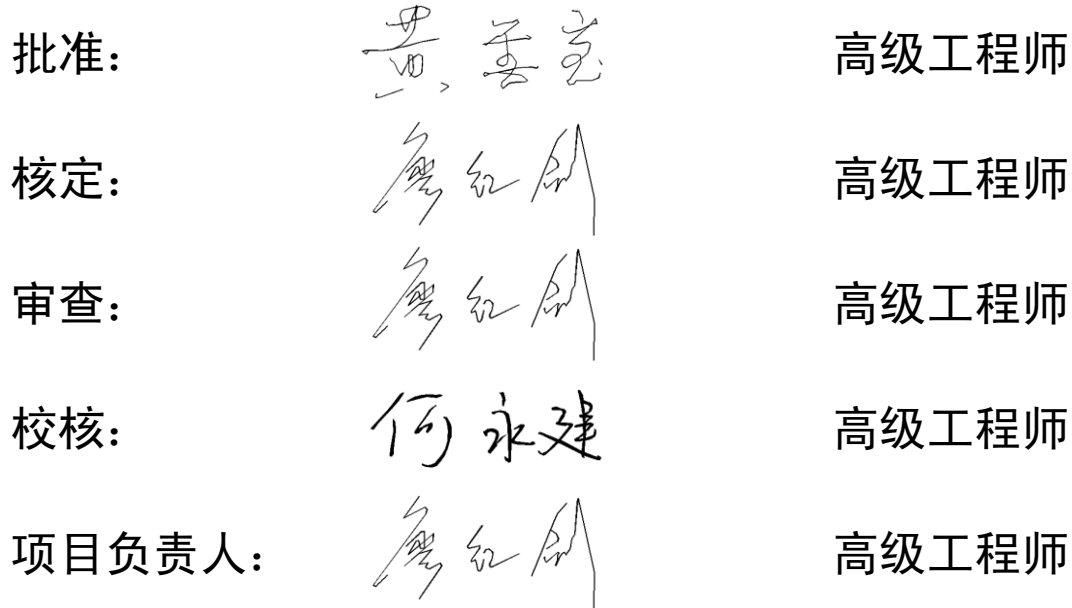 批准： 黄 高级工程师
核定： 廖红剑 高级工程师
审查： 廖红剑 高级工程师
校核： 何永建 高级工程师
项目负责人： 廖红剑 高级工程师